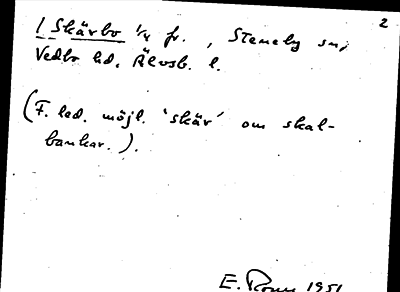 2
1 Skärbo 1/4 fr., Steneby sn,
Vedbo hd, Älvsb. l.
(F. led. möjl. 'skär' om skal-
bankar.).
E. 1951